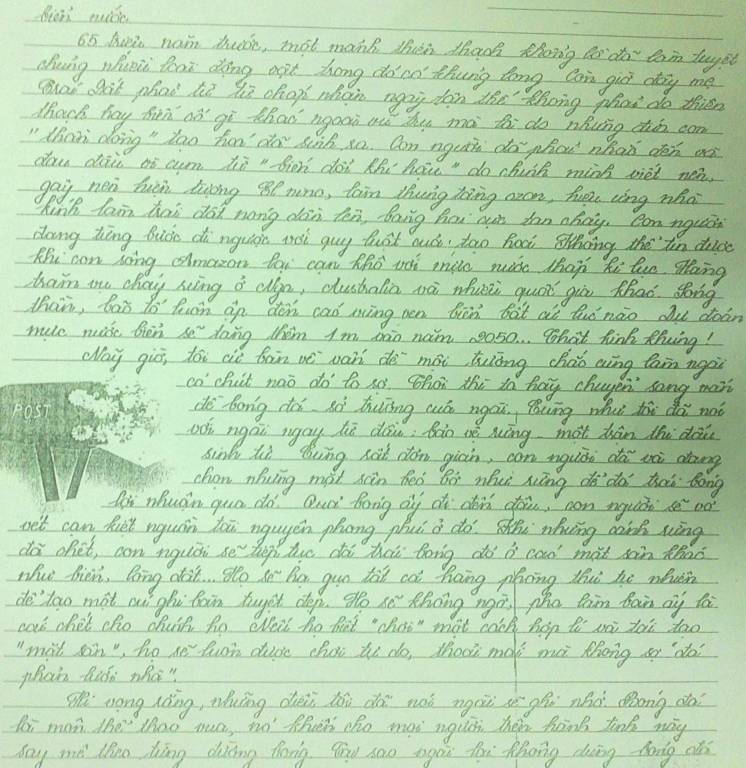 biển nước.
65 triệu năm trước, một mảnh thiên thạch khổng lồ đã làm tuyệt
chủng nhiều loài động vật trong đó có khủng long. Còn giờ đây mẹ
Trái Đất phải từ từ chấp nhận ngày tận thế không phải do thiên
thạch hay biến cố gì khác ngoài vũ trụ mà là do những đứa con
"thần đồng" tạo hoá đã sinh ra. Con người đã phải nhắc đến và
đau đầu vì cụm từ "biến đổi khí hậu" do chính mình viết nên,
gây nên hiện tượng El nino, làm thủng tầng ozon, hiệu ứng nhà
kính làm trái đất nóng dần lên, băng hai cực tan chảy. Con người
đang từng bước đi ngược với quy luật của tạo hoá. Không thể tin được
khi con sông Amazon lại cạn khô với mực nước thấp kỉ lục. Hàng
trăm vụ cháy rừng ở Nga, Australia và nhiều quốc gia khác. Sóng
thần, bão tố luôn ập đến các vùng ven biển bất cứ lúc nào. Dự đoán
mực nước biển sẽ tăng thêm 1m vào năm 2050... Thật kinh khủng!
Nãy giờ, tôi cứ bàn về vấn đề môi trường chắc cũng làm ngài
có chút nào đó lo sợ. Thôi thì ta hãy chuyển sang vấn
POST
đề bóng đá - sở trường của ngài. Cũng như tôi đã nói
với ngài ngay từ đầu: bảo vệ rừng - một trận thi đấu
sinh tử. Cũng rất đơn giản, con người đã và đang
chọn những mặt sân béo bở như rừng để đá trái bóng
lợi nhuận qua đó. Quả bóng ấy đi đến đâu, con người sẽ vơ
vét cạn kiệt nguồn tài nguyên phong phú ở đó. Khi những cánh rừng
đã chết, con người sẽ tiếp tục đá trái bóng đó ở các mặt sân khác
như biển, lòng đất... Họ sẽ hạ gục tất cả hàng phòng thủ tự nhiên
để tạo một cú ghi bàn tuyệt đẹp. Họ sẽ không ngờ, pha làm bàn ấy là
cái chết cho chính họ. Nếu họ biết "chơi" một cách hợp lí và tái tạo
"mặt sân", họ sẽ luôn được chơi tự do, thoải mái mà không sợ "đá
phản lưới nhà".
Hi vọng rằng, những điều tôi đã nói ngài sẽ ghi nhớ. Bóng đá
là môn thể thao vua, nó khiến cho mọi người trên hành tinh này
say mê theo từng đường bóng. Tại sao ngài lại không dùng bóng đá